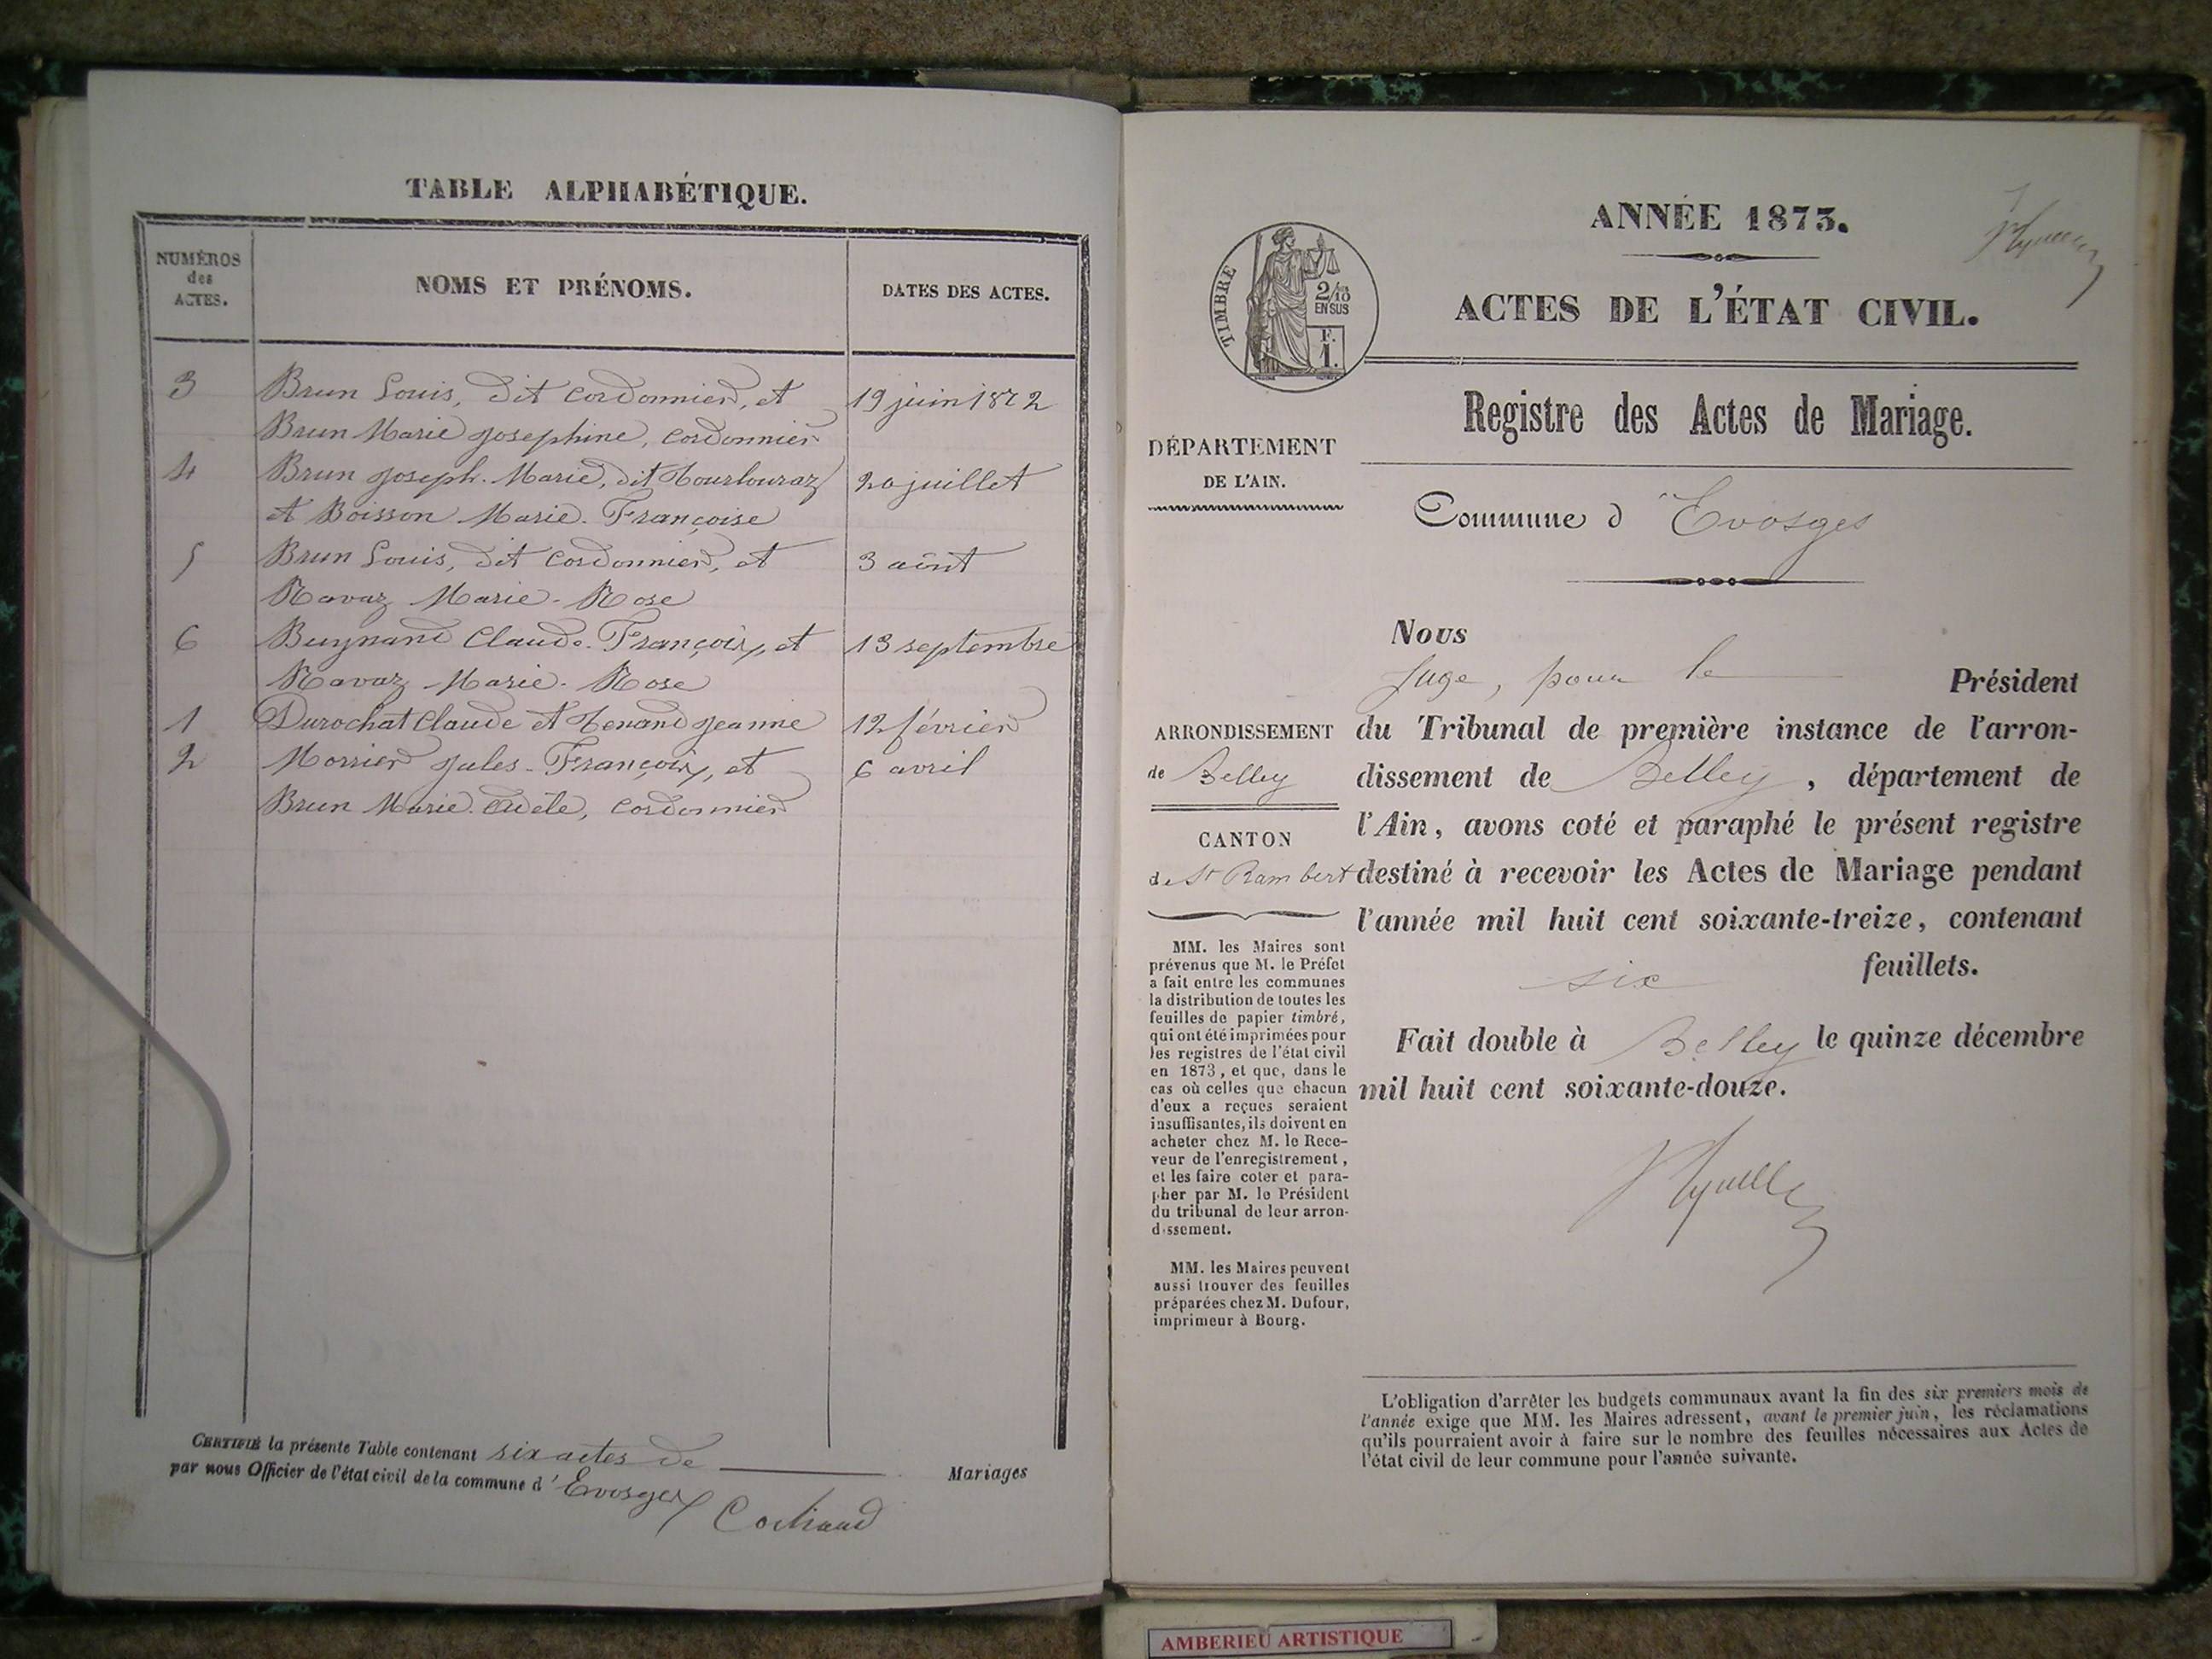 TABLE ALPHABÉTIQUE.
NUMÉROS
des
ACTES.
NOMS ET PRÉNOMS.
DATES DES ACTES.
3 Brun Louis, dit Cordonnier, et 19 juin 1872
Brun Marie Josephine, Cordonnier
4 Brun Joseph-Marie, dit 20 juillet
et Boisson Marie-Françoise
5 Brun Louis, dit Cordonnier, et 3 août
Ravaz Marie-Rose
6 Buynand Claude-François, et 13 septembre
Ravaz Marie-Rose
1 Durochat Claude et Tenand Jeanne 12 février
2 Morrier Jules-François, et 6 avril
Brun Marie-Adèle, Cordonnier
CERTIFIÉ la présente Table contenant six actes de Mariages
par nous Officier de l'état civil de la commune d'Evosges
ANNÉE 1873.
ACTES DE L'ÉTAT CIVIL.
TIMBRE
2/10
EN SUS
F.
1.
Registre des Actes de Mariage.
DÉPARTEMENT
DE L'AIN.
Commune d'Evosges
Nous
Juge, pour le Président
ARRONDISSEMENT
de Belley
CANTON
de St Rambert
du Tribunal de première instance de l'arron-
dissement de Belley, département de
l'Ain, avons coté et paraphé le présent registre
destiné à recevoir les Actes de Mariage pendant
l'année mil huit cent soixante-treize, contenant
six feuillets.
Fait double à Belley le quinze décembre
mil huit cent soixante-douze.
MM. les Maires sont
prévenus que M. le Préfet
a fait entre les communes
la distribution de toutes les
feuilles de papier timbré,
qui ont été imprimées pour
les registres de l'état civil
en 1873, et que, dans le
cas où celles que chacun
d'eux a reçues seraient
insuffisantes, ils doivent en
acheter chez M. le Rece-
veur de l'enregistrement,
et les faire coter et para-
pher par M. le Président
du tribunal de leur arron-
dissement.
MM. les Maires peuvent
aussi trouver des feuilles
préparées chez M. Dufour,
imprimeur à Bourg.
L'obligation d'arrêter les budgets communaux avant la fin des six premiers mois de
l'année exige que MM. les Maires adressent, avant le premier juin, les réclamations
qu'ils pourraient avoir à faire sur le nombre des feuilles nécessaires aux Actes de
l'état civil de leur commune pour l'année suivante.
AMBERIEU ARTISTIQUE